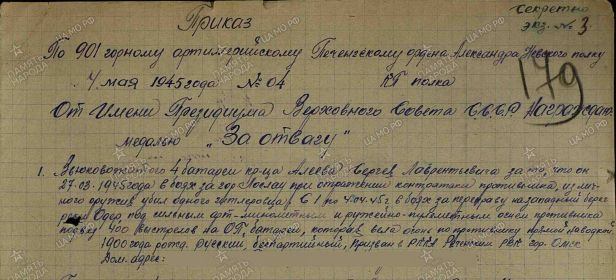 Секретно
экз. № 3
Приказ
По 901 горному артиллерийскому Печенгскому ордена Александра Невского полку
4 мая 1945 года № 04 КП полка
179
От Имени Президиума Верховного Совета С.С.С.Р. Награждаю:
медалью „За отвагу"
1. Вьюковожатого 4 батареи кр-ца Алеева Сергея Лаврентьевича за то, что он
27.03.1945 года в боях за гор при отражении контратаки противника, из лич-
ного оружия убил одного гитлеровца. С 1 по 4.04.45г. в боях за переправу на западный берег
реки Одер, под сильным арт-минометным и ружейно-пулеметным огнем противника
подвез 400 выстрелов на ОП батареи, которая вела огонь по противнику прямой наводкой
1900 года рожд. русский, беспартийный, призван в РККА РВК гор. Омск
Дом. адрес: